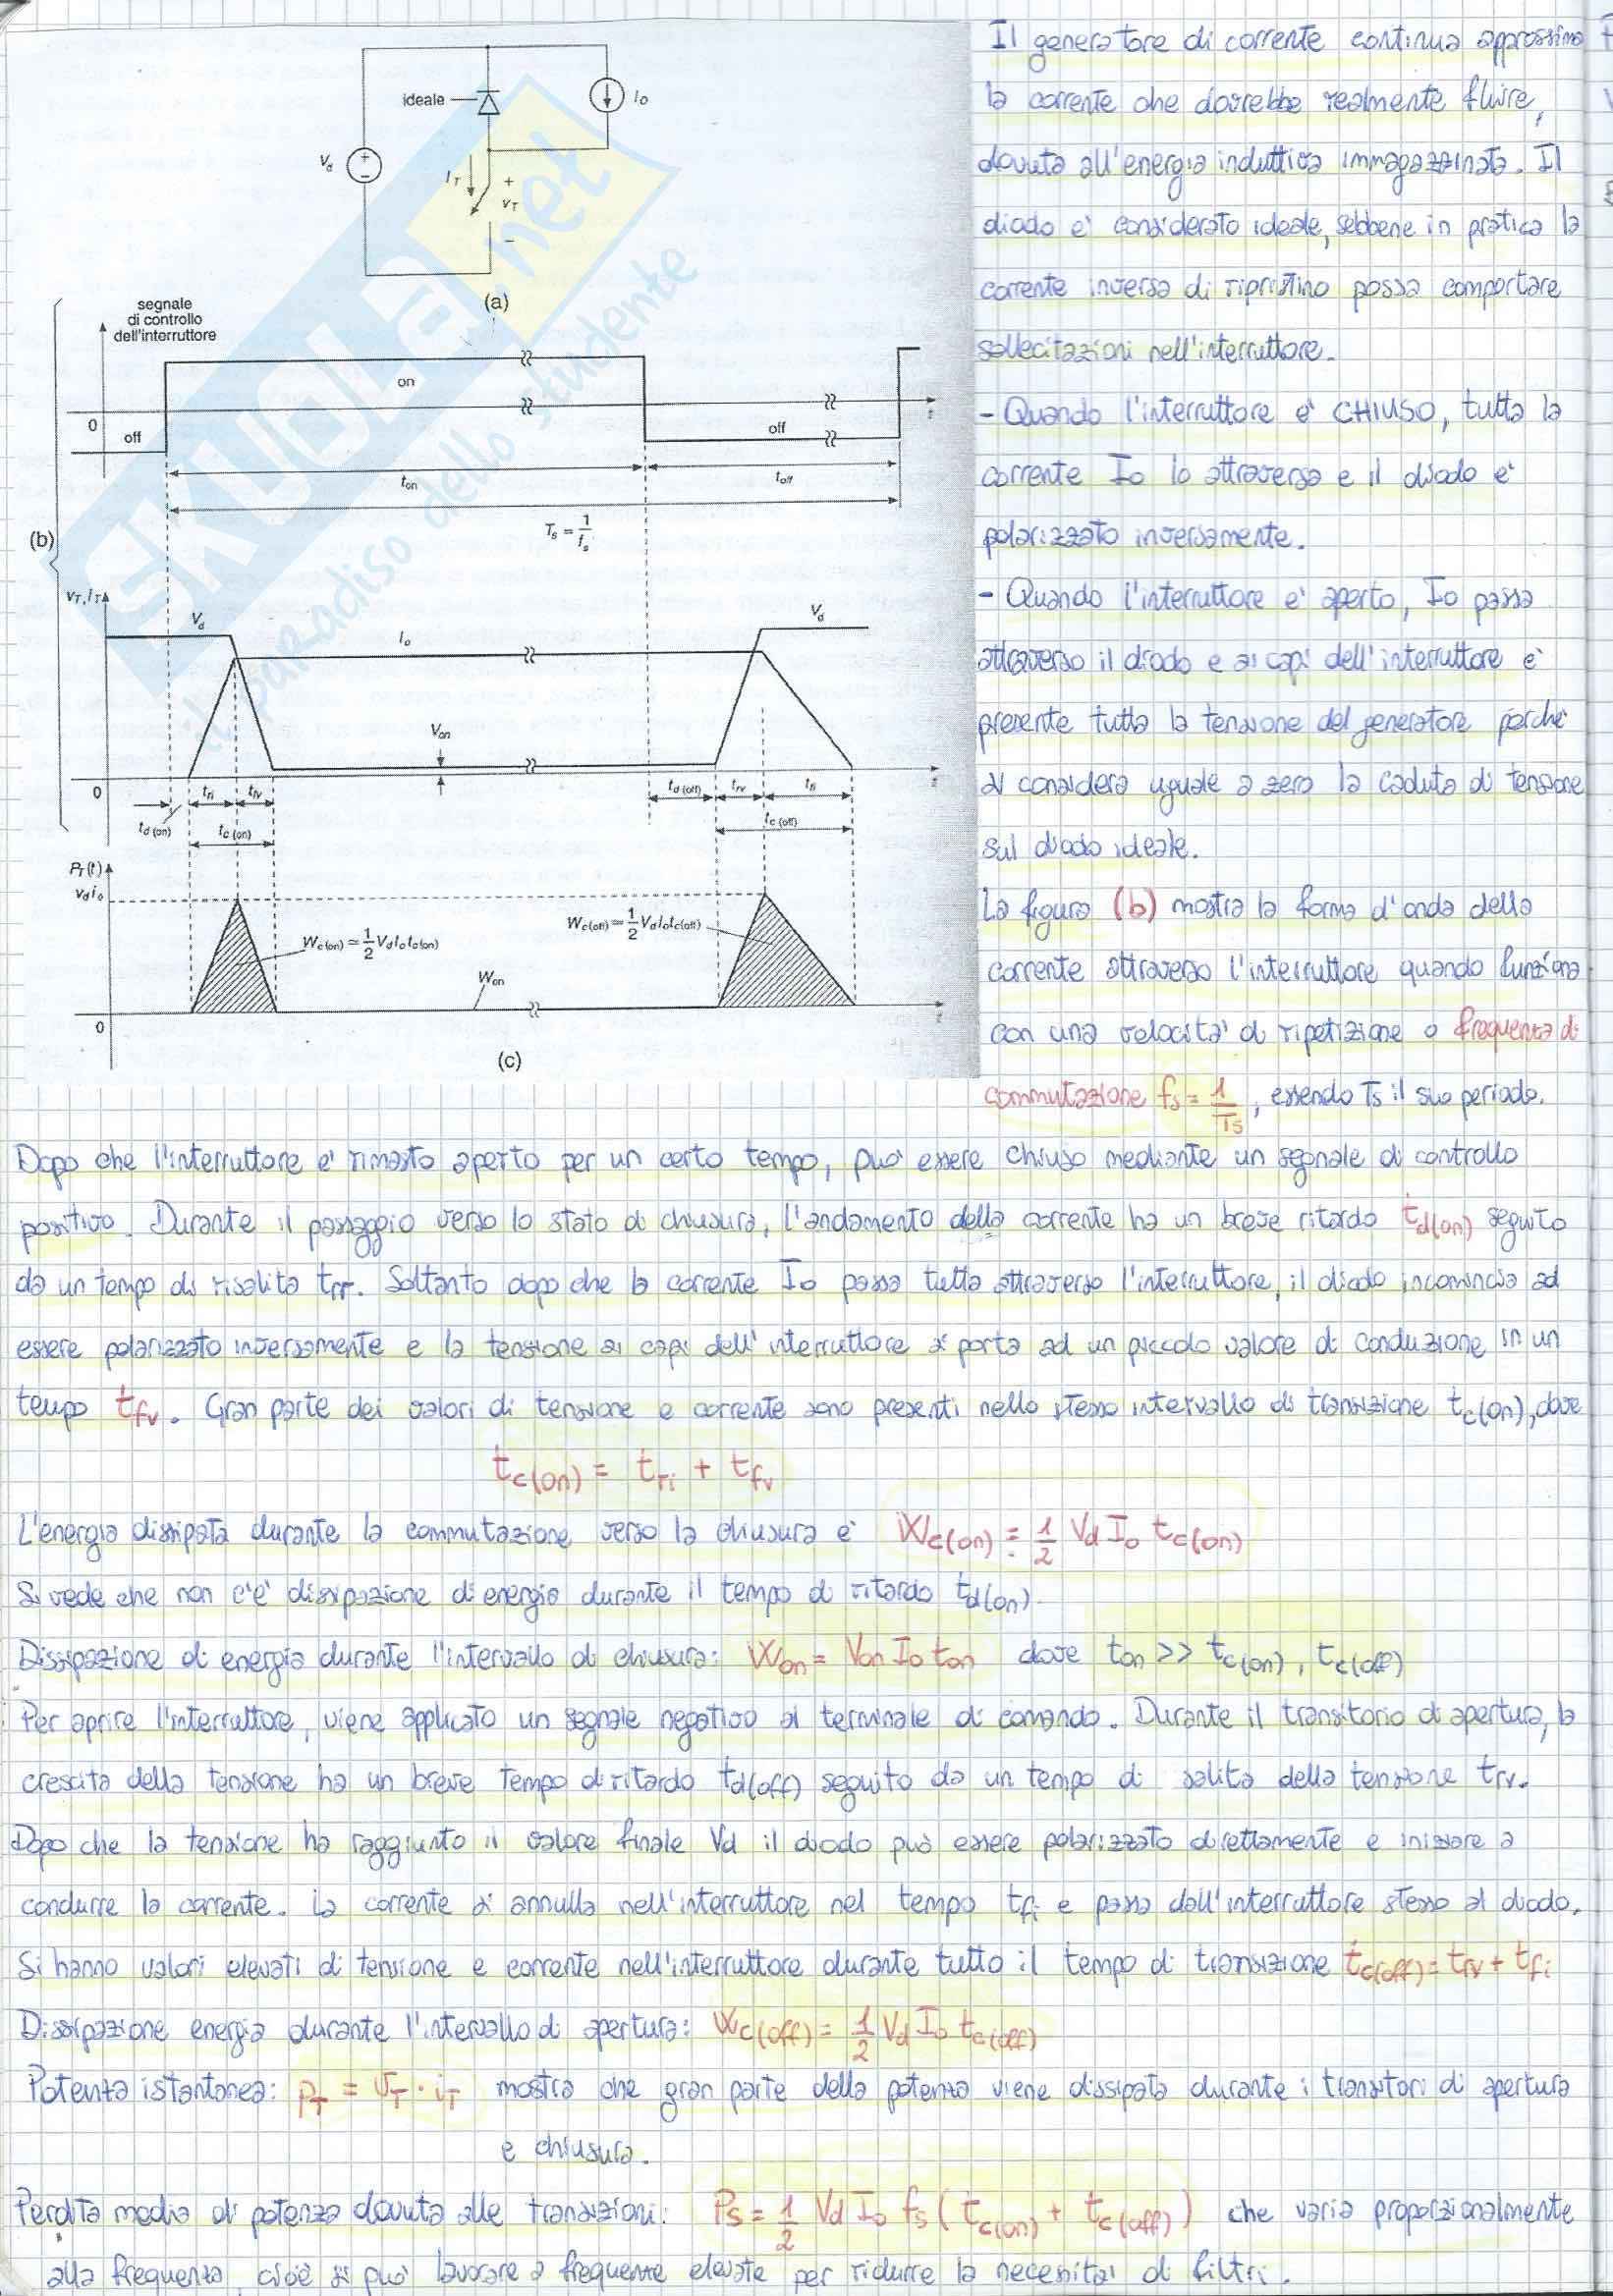 ideale
I₀
V_d
i_T
+
v_T
−
(a)
segnale
di controllo
dell'interruttore
on
0
off
off
t
t_on
t_off
T_s = 1/f_s
(b)
v_T, i_T
V_d
I₀
V_d
V_on
0
t
t_ri
t_fv
t_d(off)
t_rv
t_fi
t_d(on)
t_c(on)
t_c(off)
P_T(t)
V_d I₀
W_c(on) ≃ 1/2 V_d I₀ t_c(on)
W_c(off) ≃ 1/2 V_d I₀ t_c(off)
W_on
0
t
(c)
SKUOLA.net
il paradiso dello studente
Il generatore di corrente continua approssima
la corrente che dovrebbe realmente fluire,
dovuta all'energia induttiva immagazzinata. Il
diodo e' considerato ideale, sebbene in pratica la
corrente inversa di ripristino possa comportare
sollecitazioni nell'interruttore.
- Quando l'interruttore e' CHIUSO, tutta la
corrente I₀ lo attraversa e il diodo e'
polarizzato inversamente.
- Quando l'interruttore e' aperto, I₀ passa
attraverso il diodo e ai capi dell'interruttore e'
presente tutta la tensione del generatore perche'
si considera uguale a zero la caduta di tensione
sul diodo ideale.
La figura (b) mostra la forma d'onda della
corrente attraverso l'interruttore quando funziona
con una velocita' di ripetizione o frequenza di
commutazione f_s = 1/T_s, essendo Ts il suo periodo.
Dopo che l'interruttore e' rimasto aperto per un certo tempo, puo' essere chiuso mediante un segnale di controllo
positivo. Durante il passaggio verso lo stato di chiusura, l'andamento della corrente ha un breve ritardo t_d(on) seguito
da un tempo di risalita t_rr. Soltanto dopo che la corrente I₀ passa tutta attraverso l'interruttore, il diodo incomincia ad
essere polarizzato inversamente e la tensione ai capi dell'interruttore si porta ad un piccolo valore di conduzione in un
tempo t_fv. Gran parte dei valori di tensione e corrente sono presenti nello stesso intervallo di transizione t_c(on), dove
t_c(on) = t_ri + t_fv
L'energia dissipata durante la commutazione verso la chiusura e' W_c(on) = 1/2 V_d I₀ t_c(on)
Si vede che non c'e' dissipazione di energia durante il tempo di ritardo t_d(on).
Dissipazione di energia durante l'intervallo di chiusura: W_on = V_on I₀ t_on dove t_on >> t_c(on), t_c(off)
Per aprire l'interruttore, viene applicato un segnale negativo al terminale di comando. Durante il transitorio di apertura, la
crescita della tensione ha un breve tempo di ritardo t_d(off) seguito da un tempo di salita della tensione t_rv.
Dopo che la tensione ha raggiunto il valore finale Vd il diodo può essere polarizzato direttamente e iniziare a
condurre la corrente. La corrente si annulla nell'interruttore nel tempo t_fi e passa dall'interruttore stesso al diodo.
Si hanno valori elevati di tensione e corrente nell'interruttore durante tutto il tempo di transizione t_c(off) = t_rv + t_fi
Dissipazione energia durante l'intervallo di apertura: W_c(off) = 1/2 V_d I₀ t_c(off)
Potenza istantanea: p_T = v_T · i_T mostra che gran parte della potenza viene dissipata durante i transitori di apertura
e chiusura.
Perdita media di potenza dovuta alle transizioni: P_s = 1/2 V_d I₀ f_s (t_c(on) + t_c(off)) che varia proporzionalmente
alla frequenza, cioè si puo' lavorare a frequenze elevate per ridurre la necessita' di filtri.